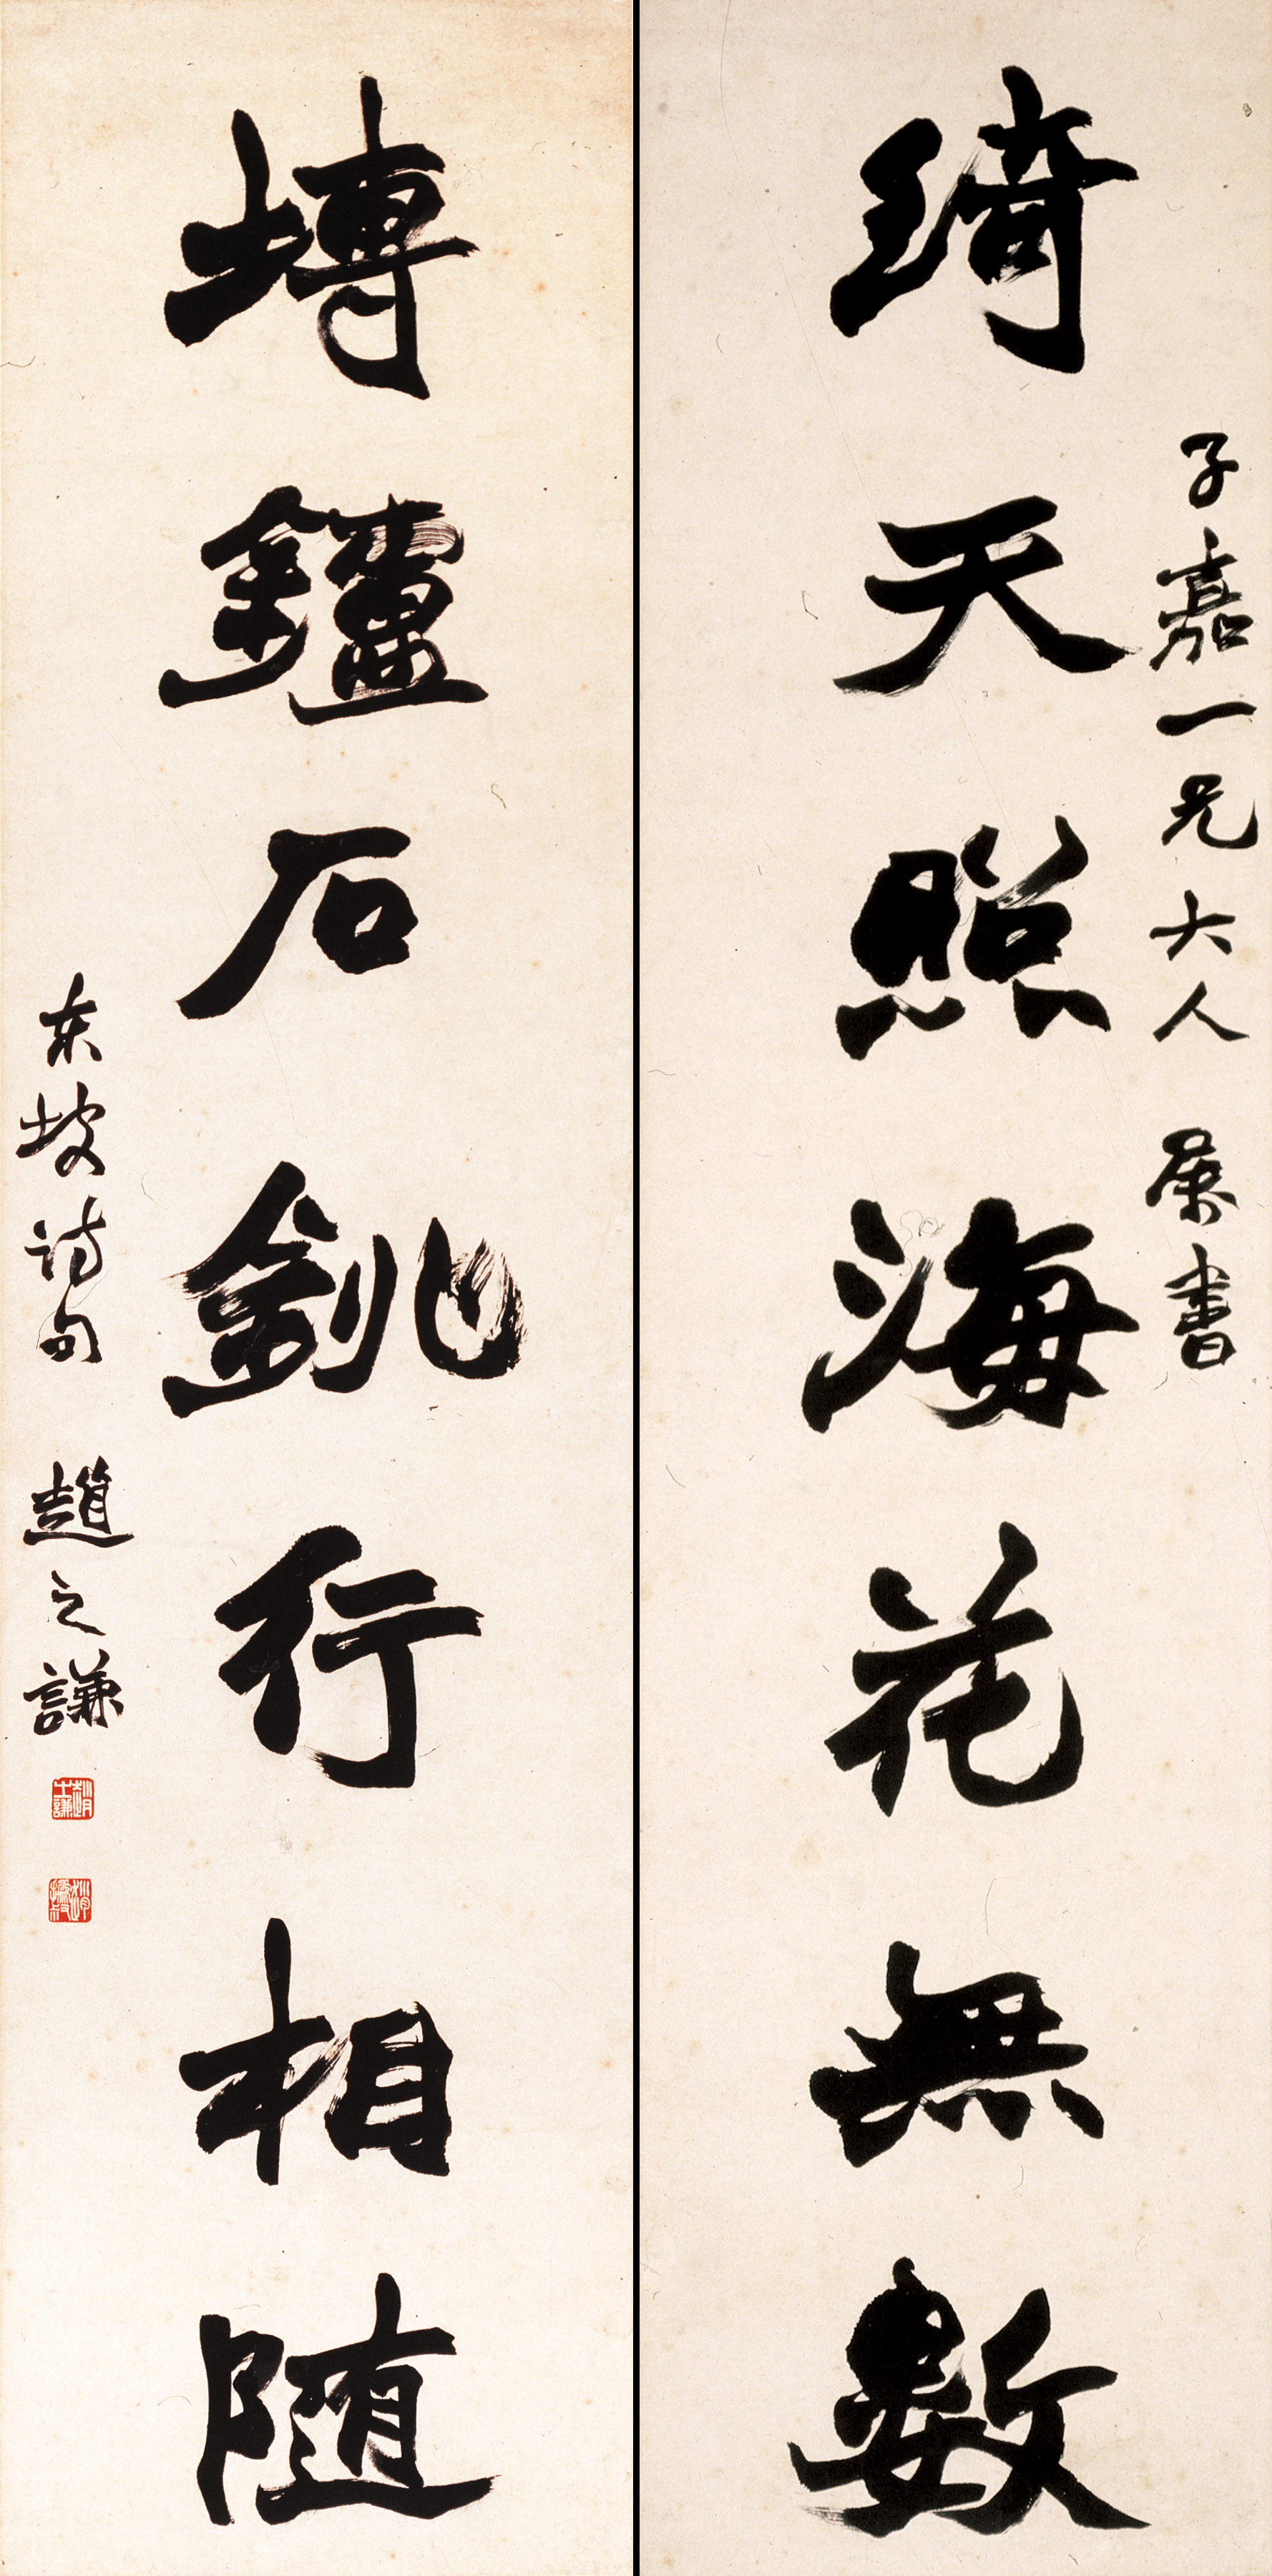 子嘉一兄大人 属書
琦天照海花無數
塼鑪石銚行相隨
東坡詩句 趙之謙
趙之謙